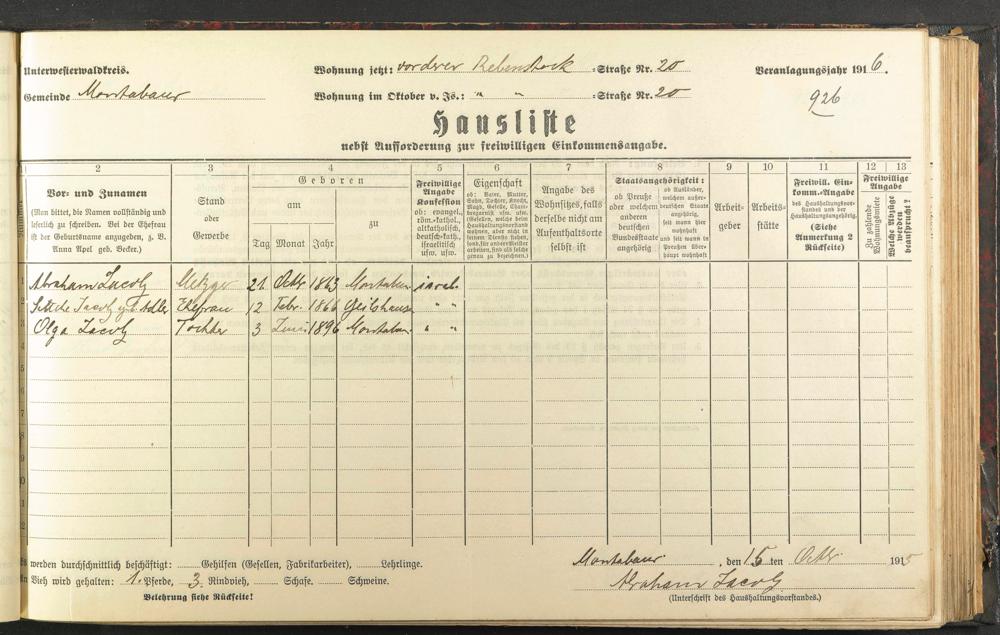 Unterwesterwaldkreis. Wohnung jetzt: vorderer Rebenstock =Straße Nr. 20 Veranlagungsjahr 1916.
Gemeinde Montabaur Wohnung im Oktober v. Js.: " " =Straße Nr. 20
926
Hausliste
nebst Aufforderung zur freiwilligen Einkommensangabe.
2 3 4 5 6 7 8 9 10 11 12 13
Vor- und Zunamen
(Man bittet, die Namen vollständig und
leserlich zu schreiben. Bei der Ehefrau
ist der Geburtsname anzugeben, z. B.
Anna Apel geb. Becker.)
Stand
oder
Gewerbe
Geboren
am
zu
Tag Monat Jahr
Freiwillige
Angabe
Konfession
ob: evangel.,
röm.-kathol.,
altkatholisch,
deutsch-kath.,
israelitisch
usw. usw.
Eigenschaft
ob: Vater, Mutter,
Sohn, Tochter, Knecht,
Magd, Geselle, Cham-
bregarnist usw. usw.
(Gesellen, welche beim
Haushaltungsvorstand
wohnen, aber nicht in
seinem Dienste stehen,
sond. für andere Meister
arbeiten, sind als solche
genau zu bezeichnen).
Angabe des
Wohnsitzes, falls
derselbe nicht am
Aufenthaltsorte
selbst ist
Staatsangehörigkeit:
ob Preuße
oder welchem
anderen
deutschen
Bundesstaate
angehörig
ob Ausländer,
welchem außer-
deutschen Staate
angehörig,
seit wann hier
wohnhaft
und seit wann in
Preußen über-
haupt wohnhaft
Arbeit-
geber
Arbeits-
stätte
Freiwill. Ein-
komm.-Angabe
des Haushaltungsvor-
standes und der
Haushaltungsangehörig.
(Siehe
Anmerkung 2
Rückseite)
Freiwillige
Angabe
Zu zahlende
Wohnungsmiete
Welche Abzüge
werden
beansprucht?
1 Abraham Jacoby Metzger 21 Octbr 1863 Montabaur israel.
2 Jacoby geb. Adler Ehefrau 12 Febr. 1866 " "
3 Olga Jacoby Tochter 3 Juni 1896 Montabaur " "
werden durchschnittlich beschäftigt: Gehilfen (Gesellen, Fabrikarbeiter), Lehrlinge.
Vieh wird gehalten: 1. Pferde, 3. Rindvieh, Schafe. Schweine.
Belehrung siehe Rückseite!
Montabaur, den 15 ten Octbr 1915
Abraham Jacoby
(Unterschrift des Haushaltungsvorstandes.)